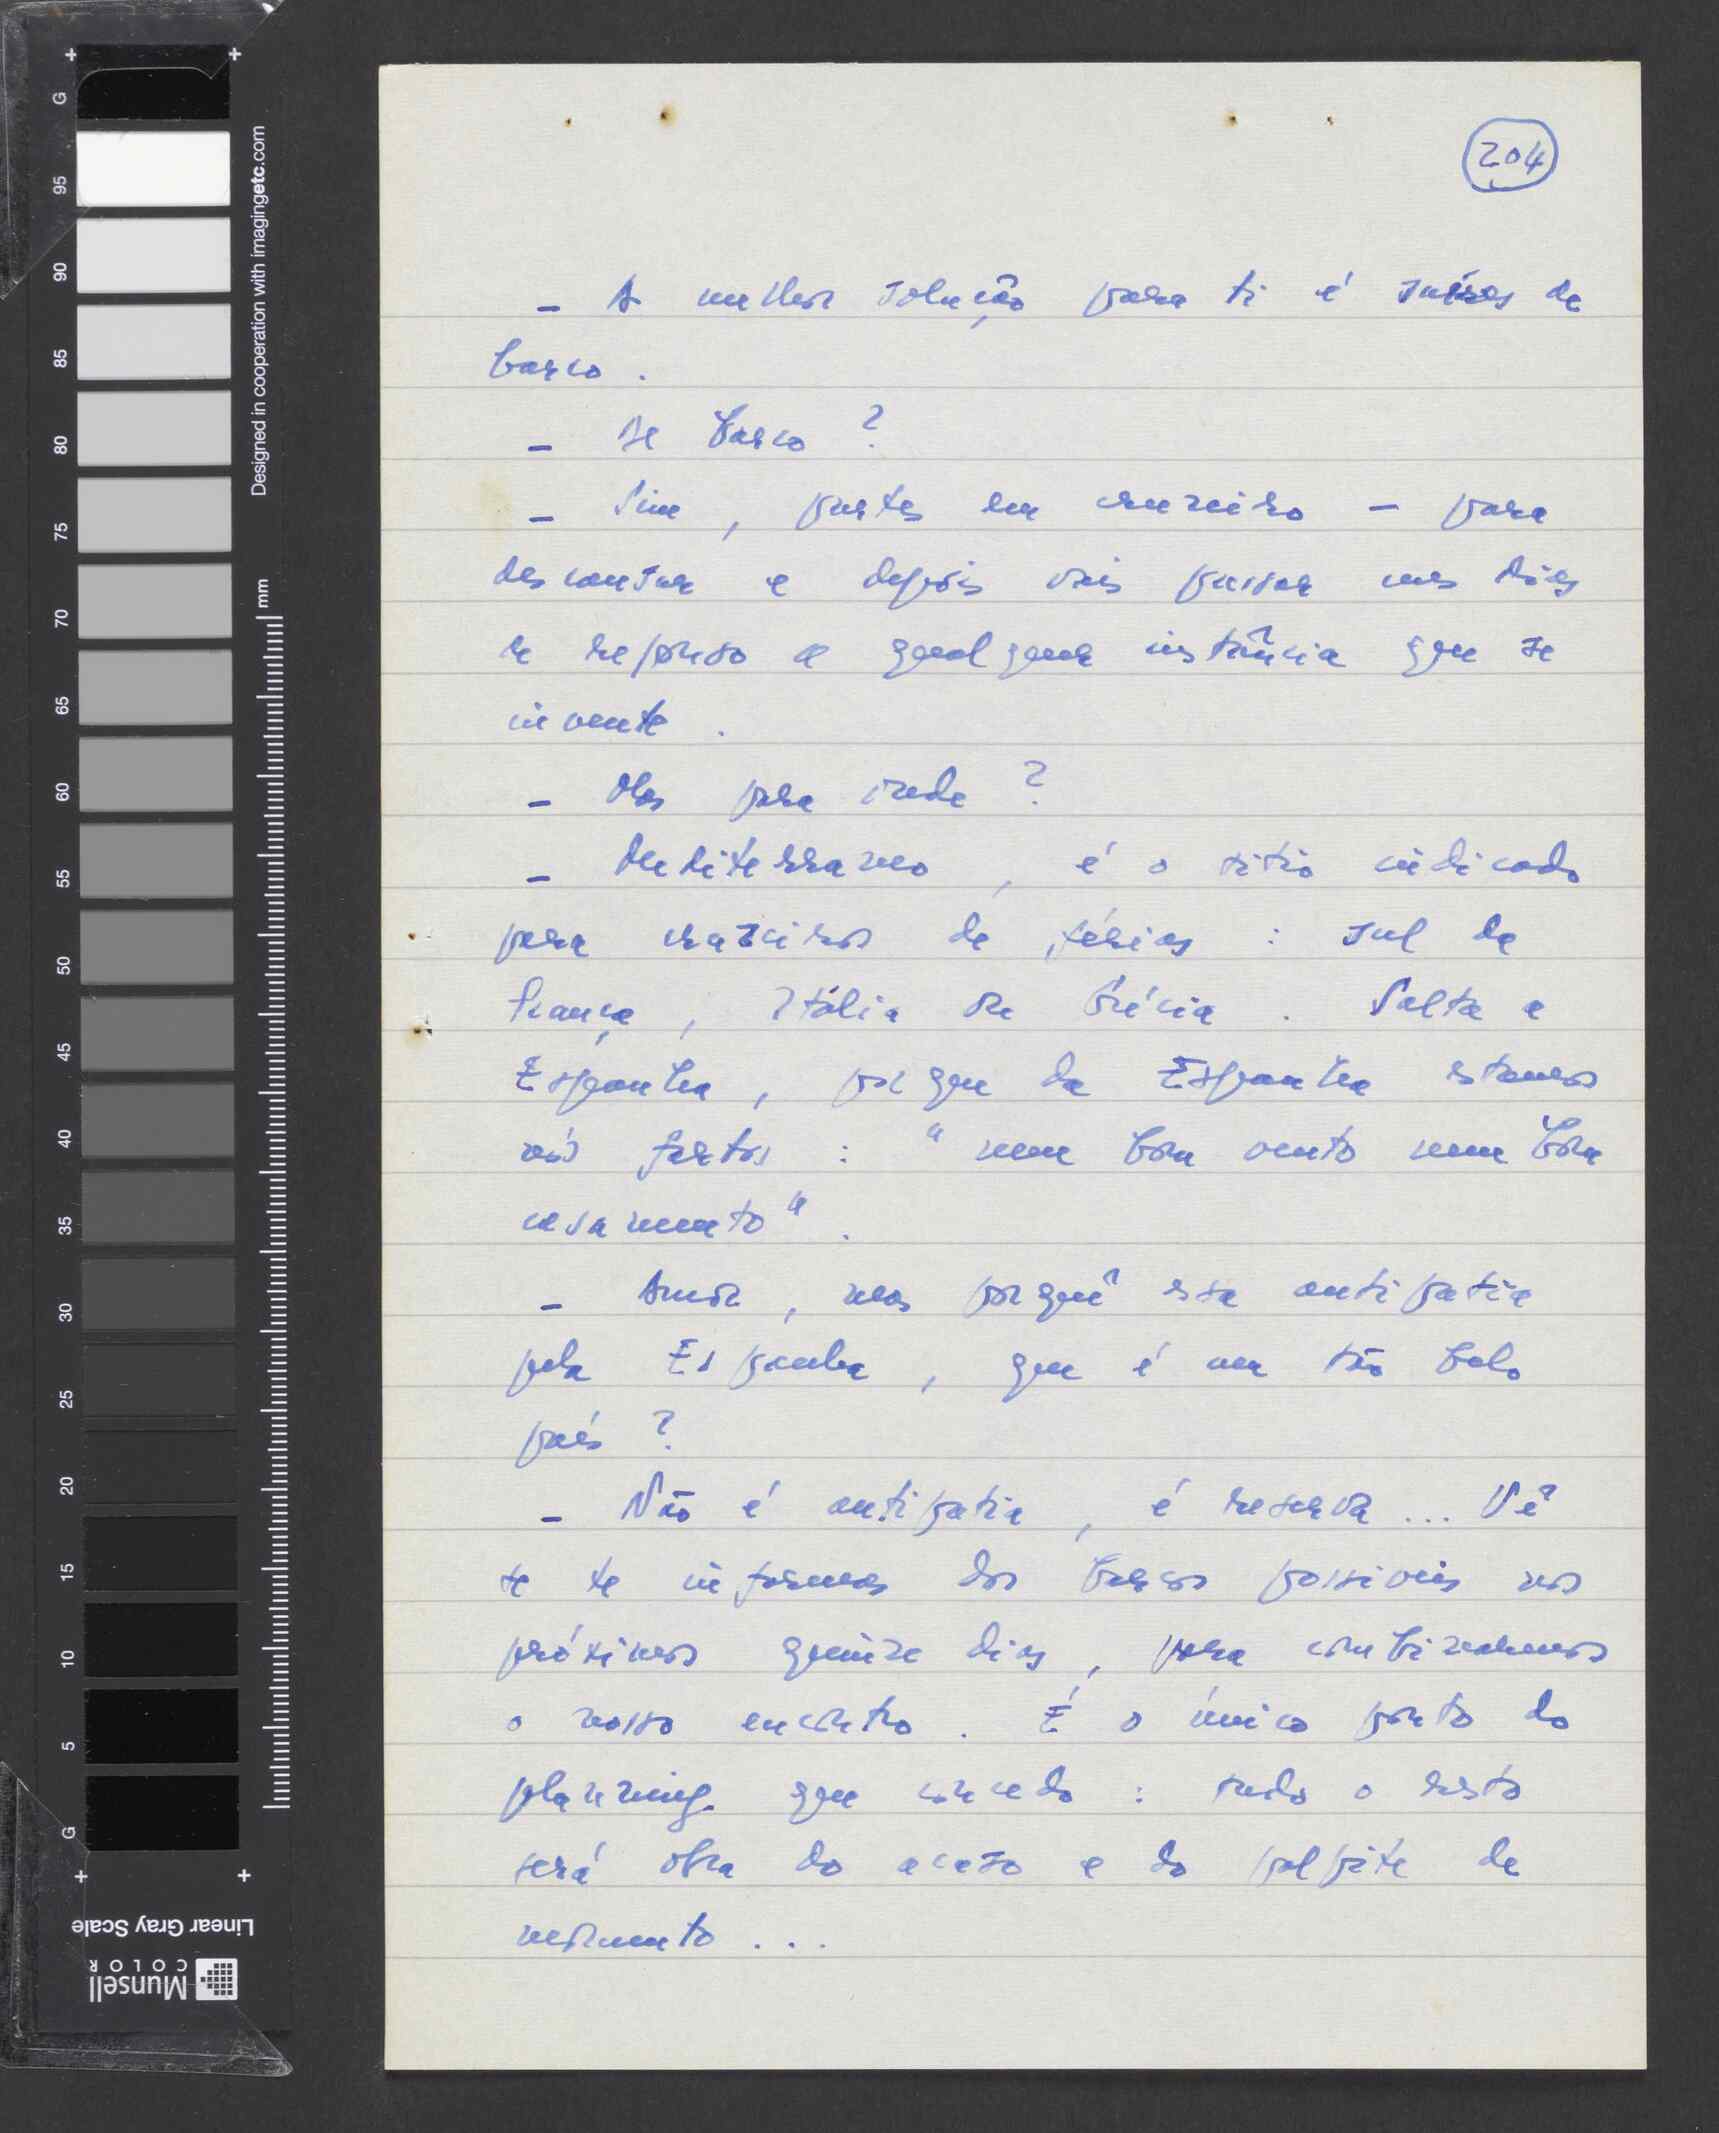 204
— A melhor solução para ti é saíres de
barco.
— De barco?
— Sim, partes em cruzeiro — para
descansar e depois vais passar uns dias
de repouso a qualquer instância que se
invente.
— Mas para onde?
— Mediterraneo, é o sitio indicado
para cruzeiros de férias: sul da
França, Itália ou Grécia. Salta a
Espanha, porque da Espanha estamos
nós fartos: "nem bom vento nem bom
casamento".
— Amor, mas porquê essa antipatia
pela Espanha, que é um tão belo
país?
— Não é antipatia, é reserva... Vê
se te informas dos barcos possiveis nos
próximos quinze dias, para combinarmos
o nosso encontro. É o único ponto do
planning que concedo: tudo o resto
será obra do acaso e do palpite de
momento...
G
95
90
85
80
75
70
65
60
55
50
45
40
35
30
25
20
15
10
5
G
Designed in cooperation with imagingetc.com
mm
Linear Gray Scale
Munsell
COLOR